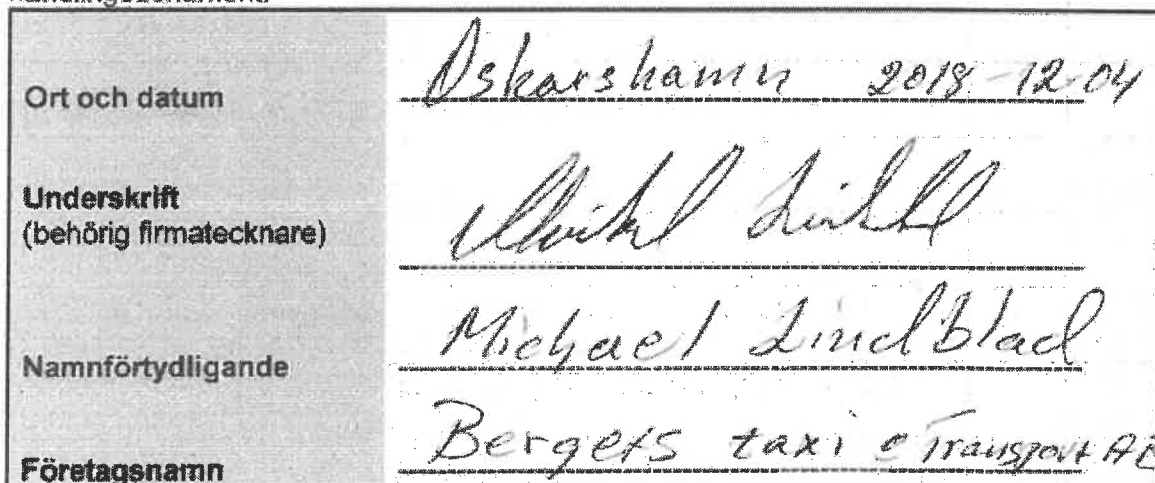 Ort och datum Oskarshamn 2018-12-04
Underskrift
(behörig firmatecknare)
Namnförtydligande Michael Lindblad
Företagsnamn Bergets taxi o Transport AB